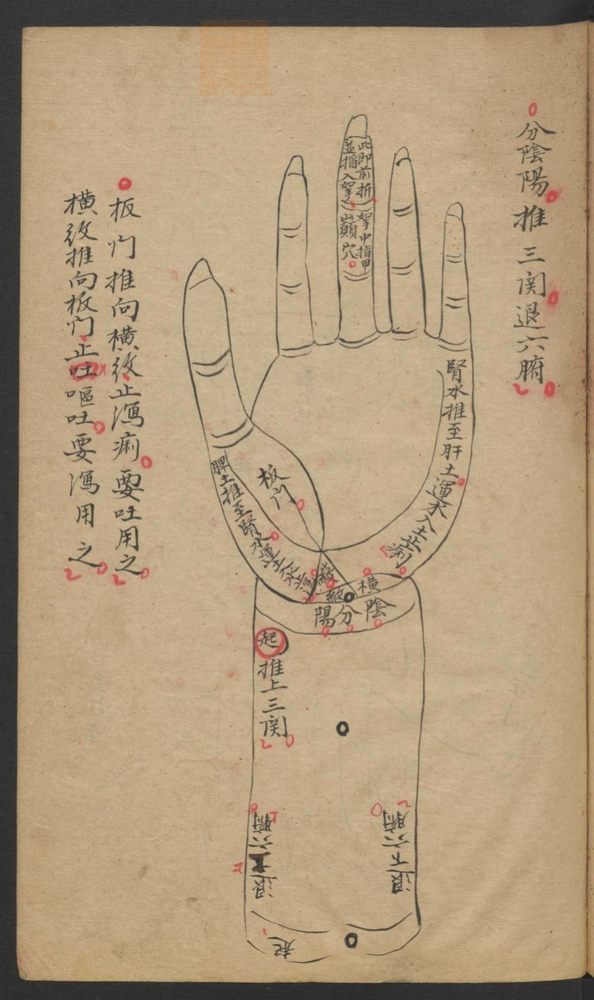 分陰陽推三関退六腑
此即前折拏中指甲
並掐入拏巔穴
腎水推至肝土運水入土止痢
板门
脾土推至腎水運土入水
横紋
陰分陽
起
推上三関
退下六腑
退下六腑
起
板门推向横紋止瀉痢要吐用之
横紋推向板门止吐嘔吐要瀉用之